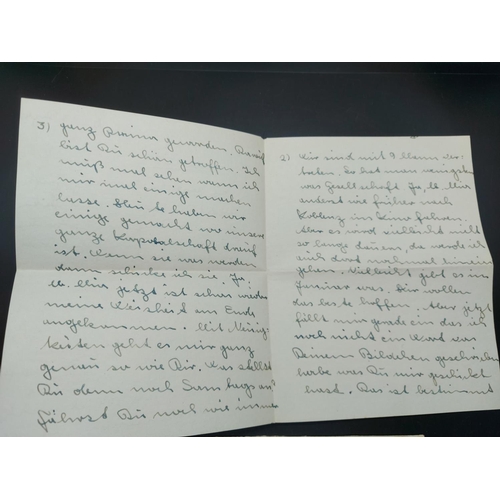 2) Wir sind mit 9 Mann ver-
treten. Da hat man wenigstens
was Gesellschaft Ja Ilse Man
anderst wie früher nach
Koblenz ins Kino fahren.
Aber es wird vielleicht nicht
so lange dauern, da werde ich
sich doch nochmal
sehen. Vielleicht gibt es im
Januar was. Wir wollen
das beste hoffen. Aber jetzt
fällt mir grade ein das ich
noch nicht ein Wort von
Deinem Bildchen geschrieben
habe was Du mir geschickt
hast. Das ist bestimmt
3) ganz Prima geworden. Darauf
bist Du schön getroffen. Ich
muß mal sehen wann ich
mir mal einige machen
lasse. Heute haben wir
einige gemacht wo unsere
ganze Korporalschaft drauf
ist. Wenn sie was werden
dann schicke ich sie. Ja,
jetzt ist schon wieder
meine Weisheit am Ende
angekommen. Mit Neuig-
keiten geht es mir ganz
genau so wie Dir. Was stellst
Du denn noch Samstags an?
Fährst Du noch wie immer